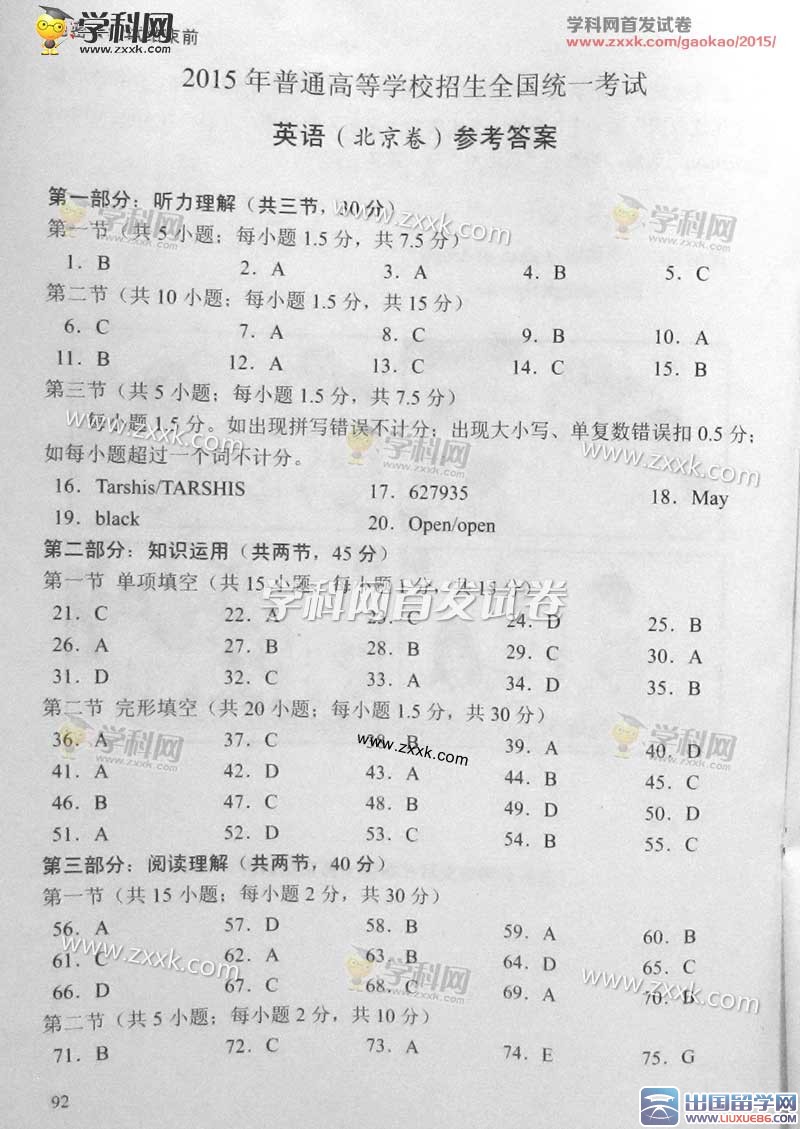 学科网
www.zxxk.com
束前
学科网首发试卷
www.zxxk.com/gaokao/2015/
2015 年普通高等学校招生全国统一考试
英语（北京卷）参考答案
第一部分：听力理解（共三节，30 分）
第一节（共 5 小题；每小题 1.5 分，共 7.5 分）
1． B 2． A 3． A 4． B 5． C
第二节（共 10 小题；每小题 1.5 分，共 15 分）
6． C 7． A 8． C 9． B 10． A
11． B 12． A 13． C 14． C 15． B
第三节（共 5 小题；每小题 1.5 分，共 7.5 分）
每小题 1.5 分。如出现拼写错误不计分；出现大小写、单复数错误扣 0.5 分；
如每小题超过一个词不计分。
16．Tarshis/TARSHIS 17．627935 18．May
19．black 20．Open/open
第二部分：知识运用（共两节，45 分）
第一节 单项填空（共 15 小题；每小题 1 分，共 15 分）
学科网首发试卷
21． C 22． A 23． C 24． D 25． B
26． A 27． B 28． B 29． C 30． A
31． D 32． C 33． A 34． D 35． B
第二节 完形填空（共 20 小题；每小题 1.5 分，共 30 分）
36． A 37． C 38． B 39． A 40． D
www.zxxk.com
41． A 42． D 43． A 44． B 45． C
46． B 47． C 48． B 49． D 50． D
51． A 52． D 53． C 54． B 55． C
第三部分：阅读理解（共两节，40 分）
第一节（共 15 小题；每小题 2 分，共 30 分）
56． A 57． D 58． B 59． A 60． B
61． C 62． A 63． B 64． D 65． C
66． D 67． C 68． C 69． A
第二节（共 5 小题；每小题 2 分，共 10 分）
71． B 72． C 73． A 74． E 75． G
92
出国留学网
WWW.LIUXUE86.COM